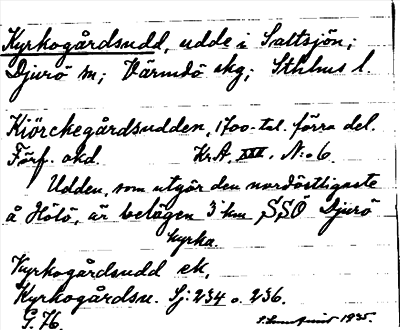 Kyrkogårdsudd, udde i Saltsjön;
Djurö sn; Värmdö skg; Sthlms l.
Kiörckegårdsudden, 1700-tal. förra del.
Förf. okd. Kr.A. XIV. N:o 6.
Udden, som utgör den nordöstligaste
å Hölö, är belägen 3 km SSÖ Djurö
kyrka.
Kyrkogårdsudd ek,
Kyrkogårdsu. Sj: 234 o. 236.
G. 76. 1935.